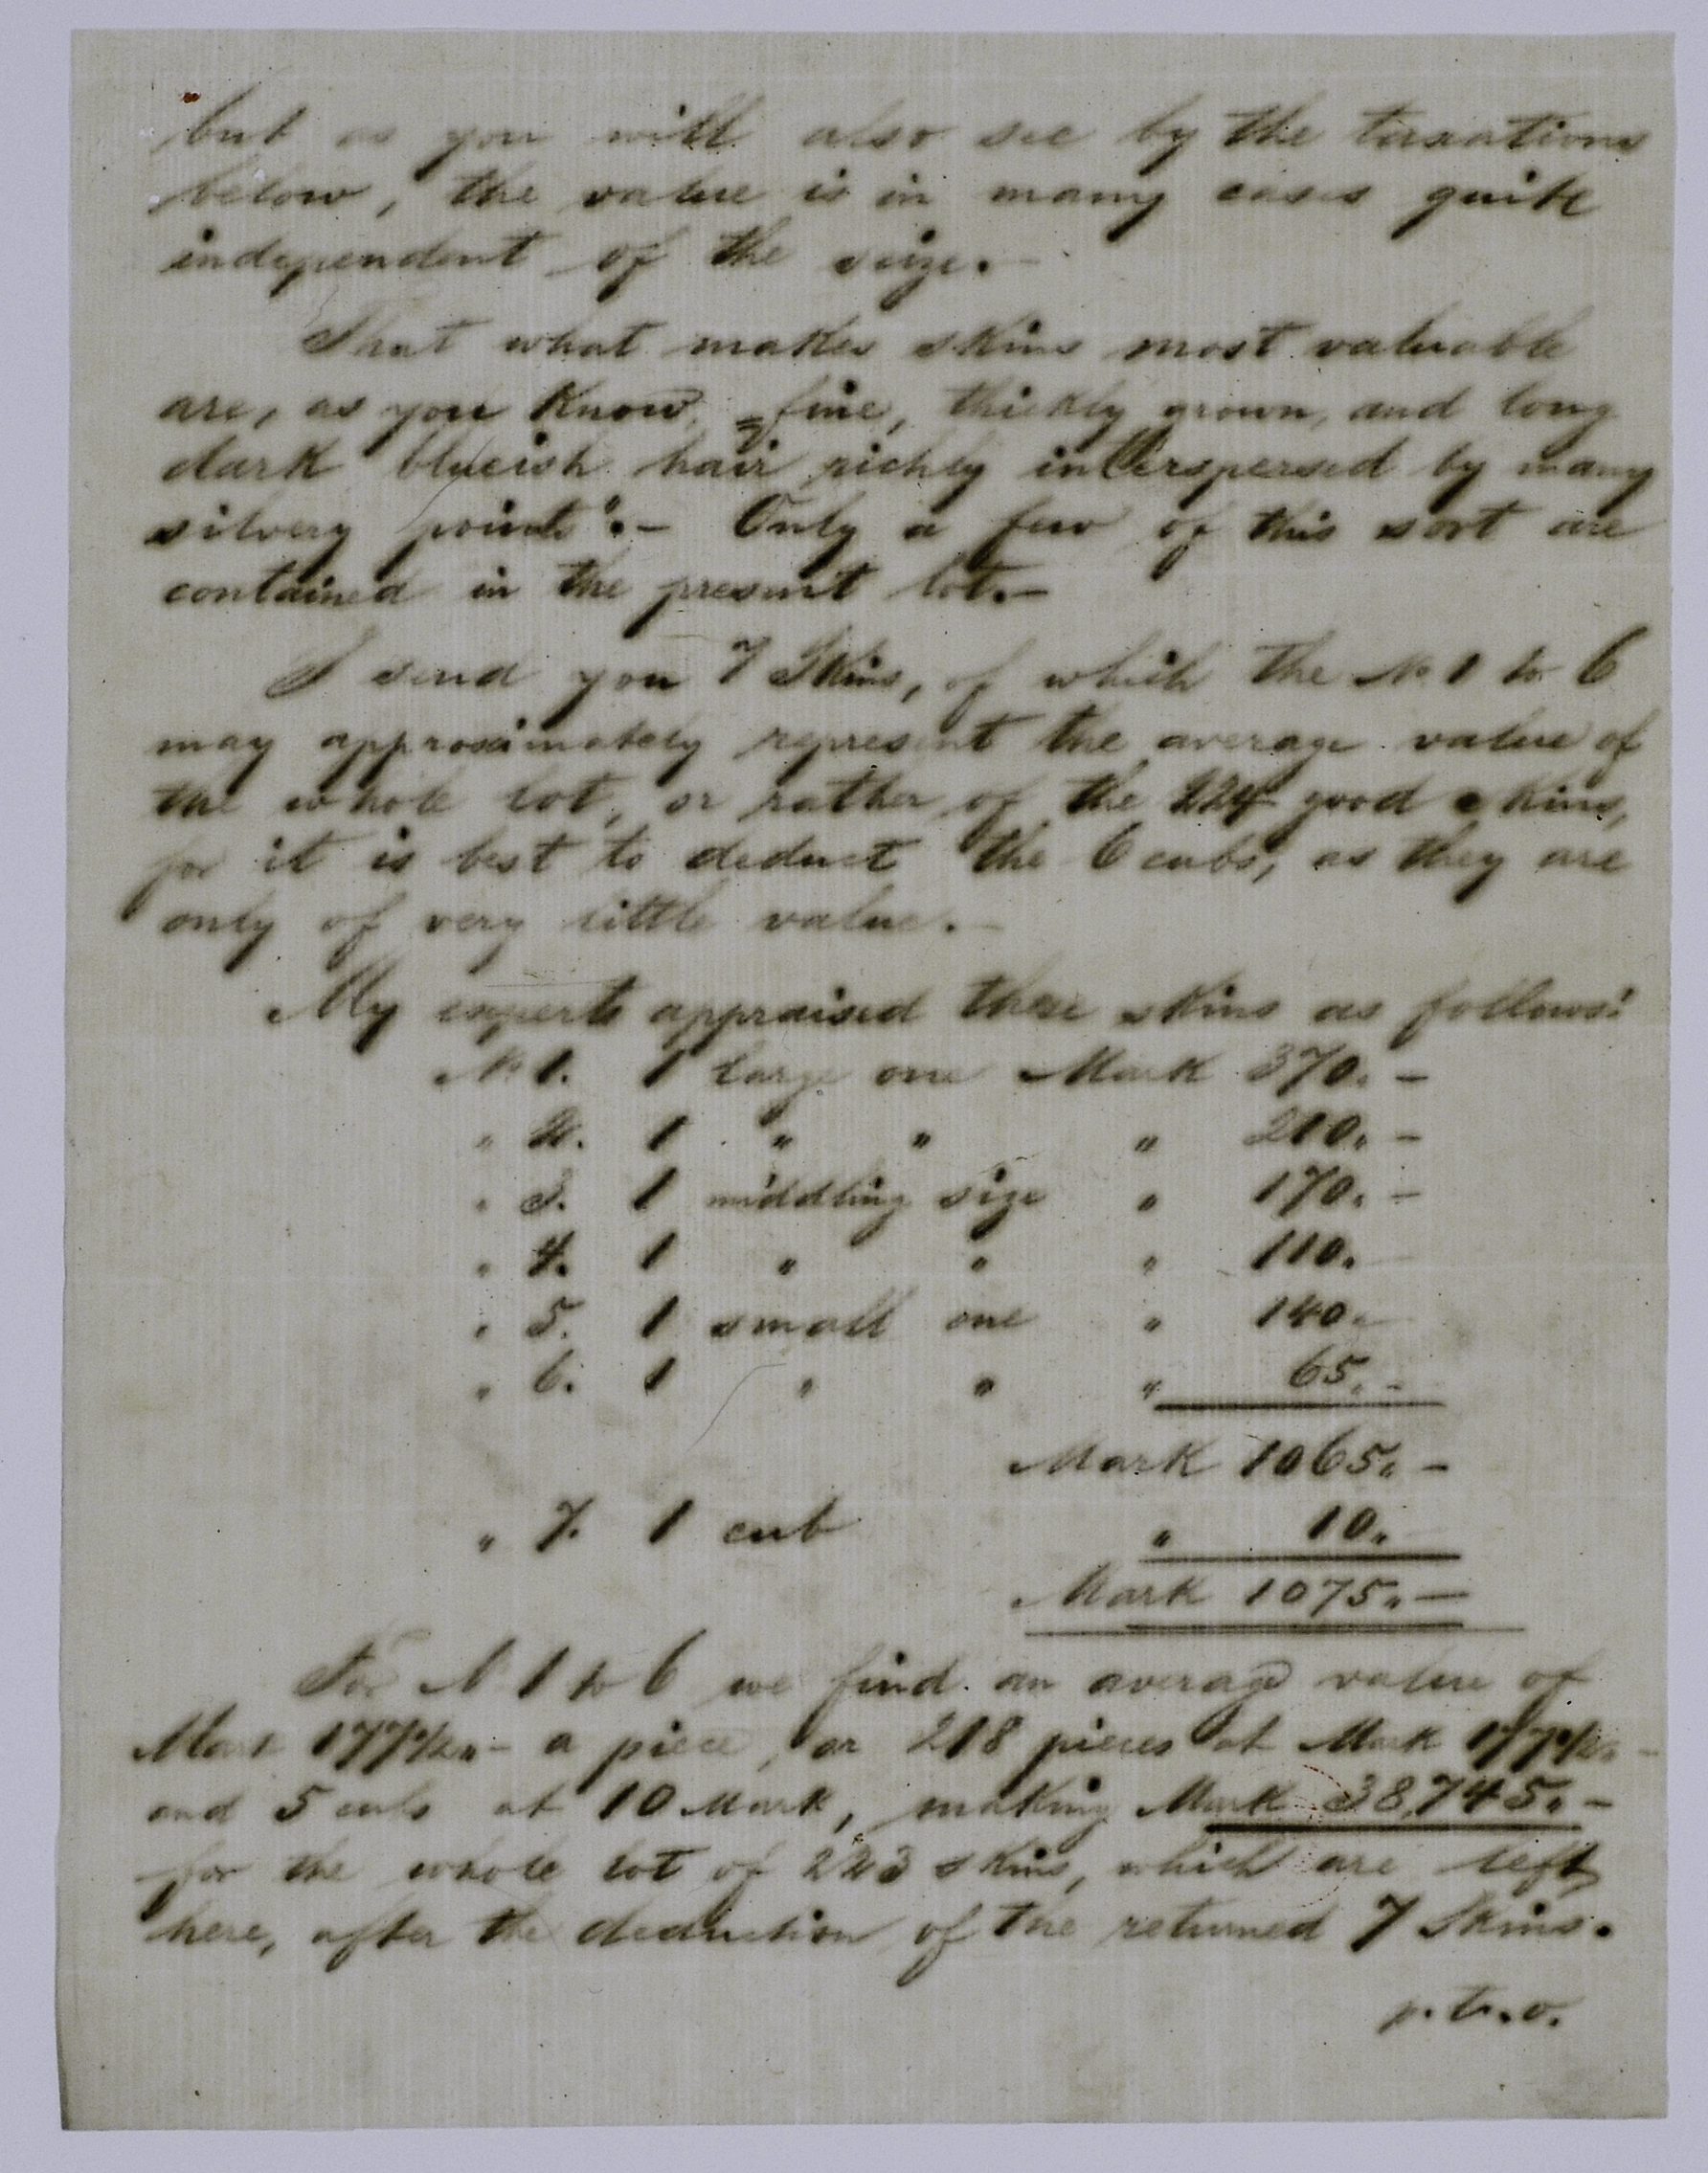 but as you will also see by the taxations
below, the value is in many cases quite
independent of the seize.-
That what makes skins most valuable
are, as you know, „fine, thickly grown, and long
dark blueish hair richly interspersed by many
silvery points“.- Only a few of this sort are
contained in the present lot.-
I send you 7 Skins, of which the No 1 to 6
may approximately represent the average value of
the whole lot, or rather of the 224 good skins,
for it is best to deduct the 6 cubs, as they are
only of very little value.-
My experts appraised these skins as follows:
No 1. 1 large one Mark 370.-
" 2. 1 " " " 210.-
" 3. 1 middling size " 170.-
" 4. 1 " " " 110.-
" 5. 1 small one " 140.-
" 6. 1 " " " 65.-
Mark 1065.-
" 7. 1 cub " 10.-
Mark 1075.-
For No 1 to 6 we find an average value of
Mark 177½.- a piece, or 218 pieces at Mark 177½.-
and 5 cubs at 10 Mark, making Mark 38,745.-
for the whole lot of 223 skins, which are left
here, after the deduction of the returned 7 Skins.
p.t.o.